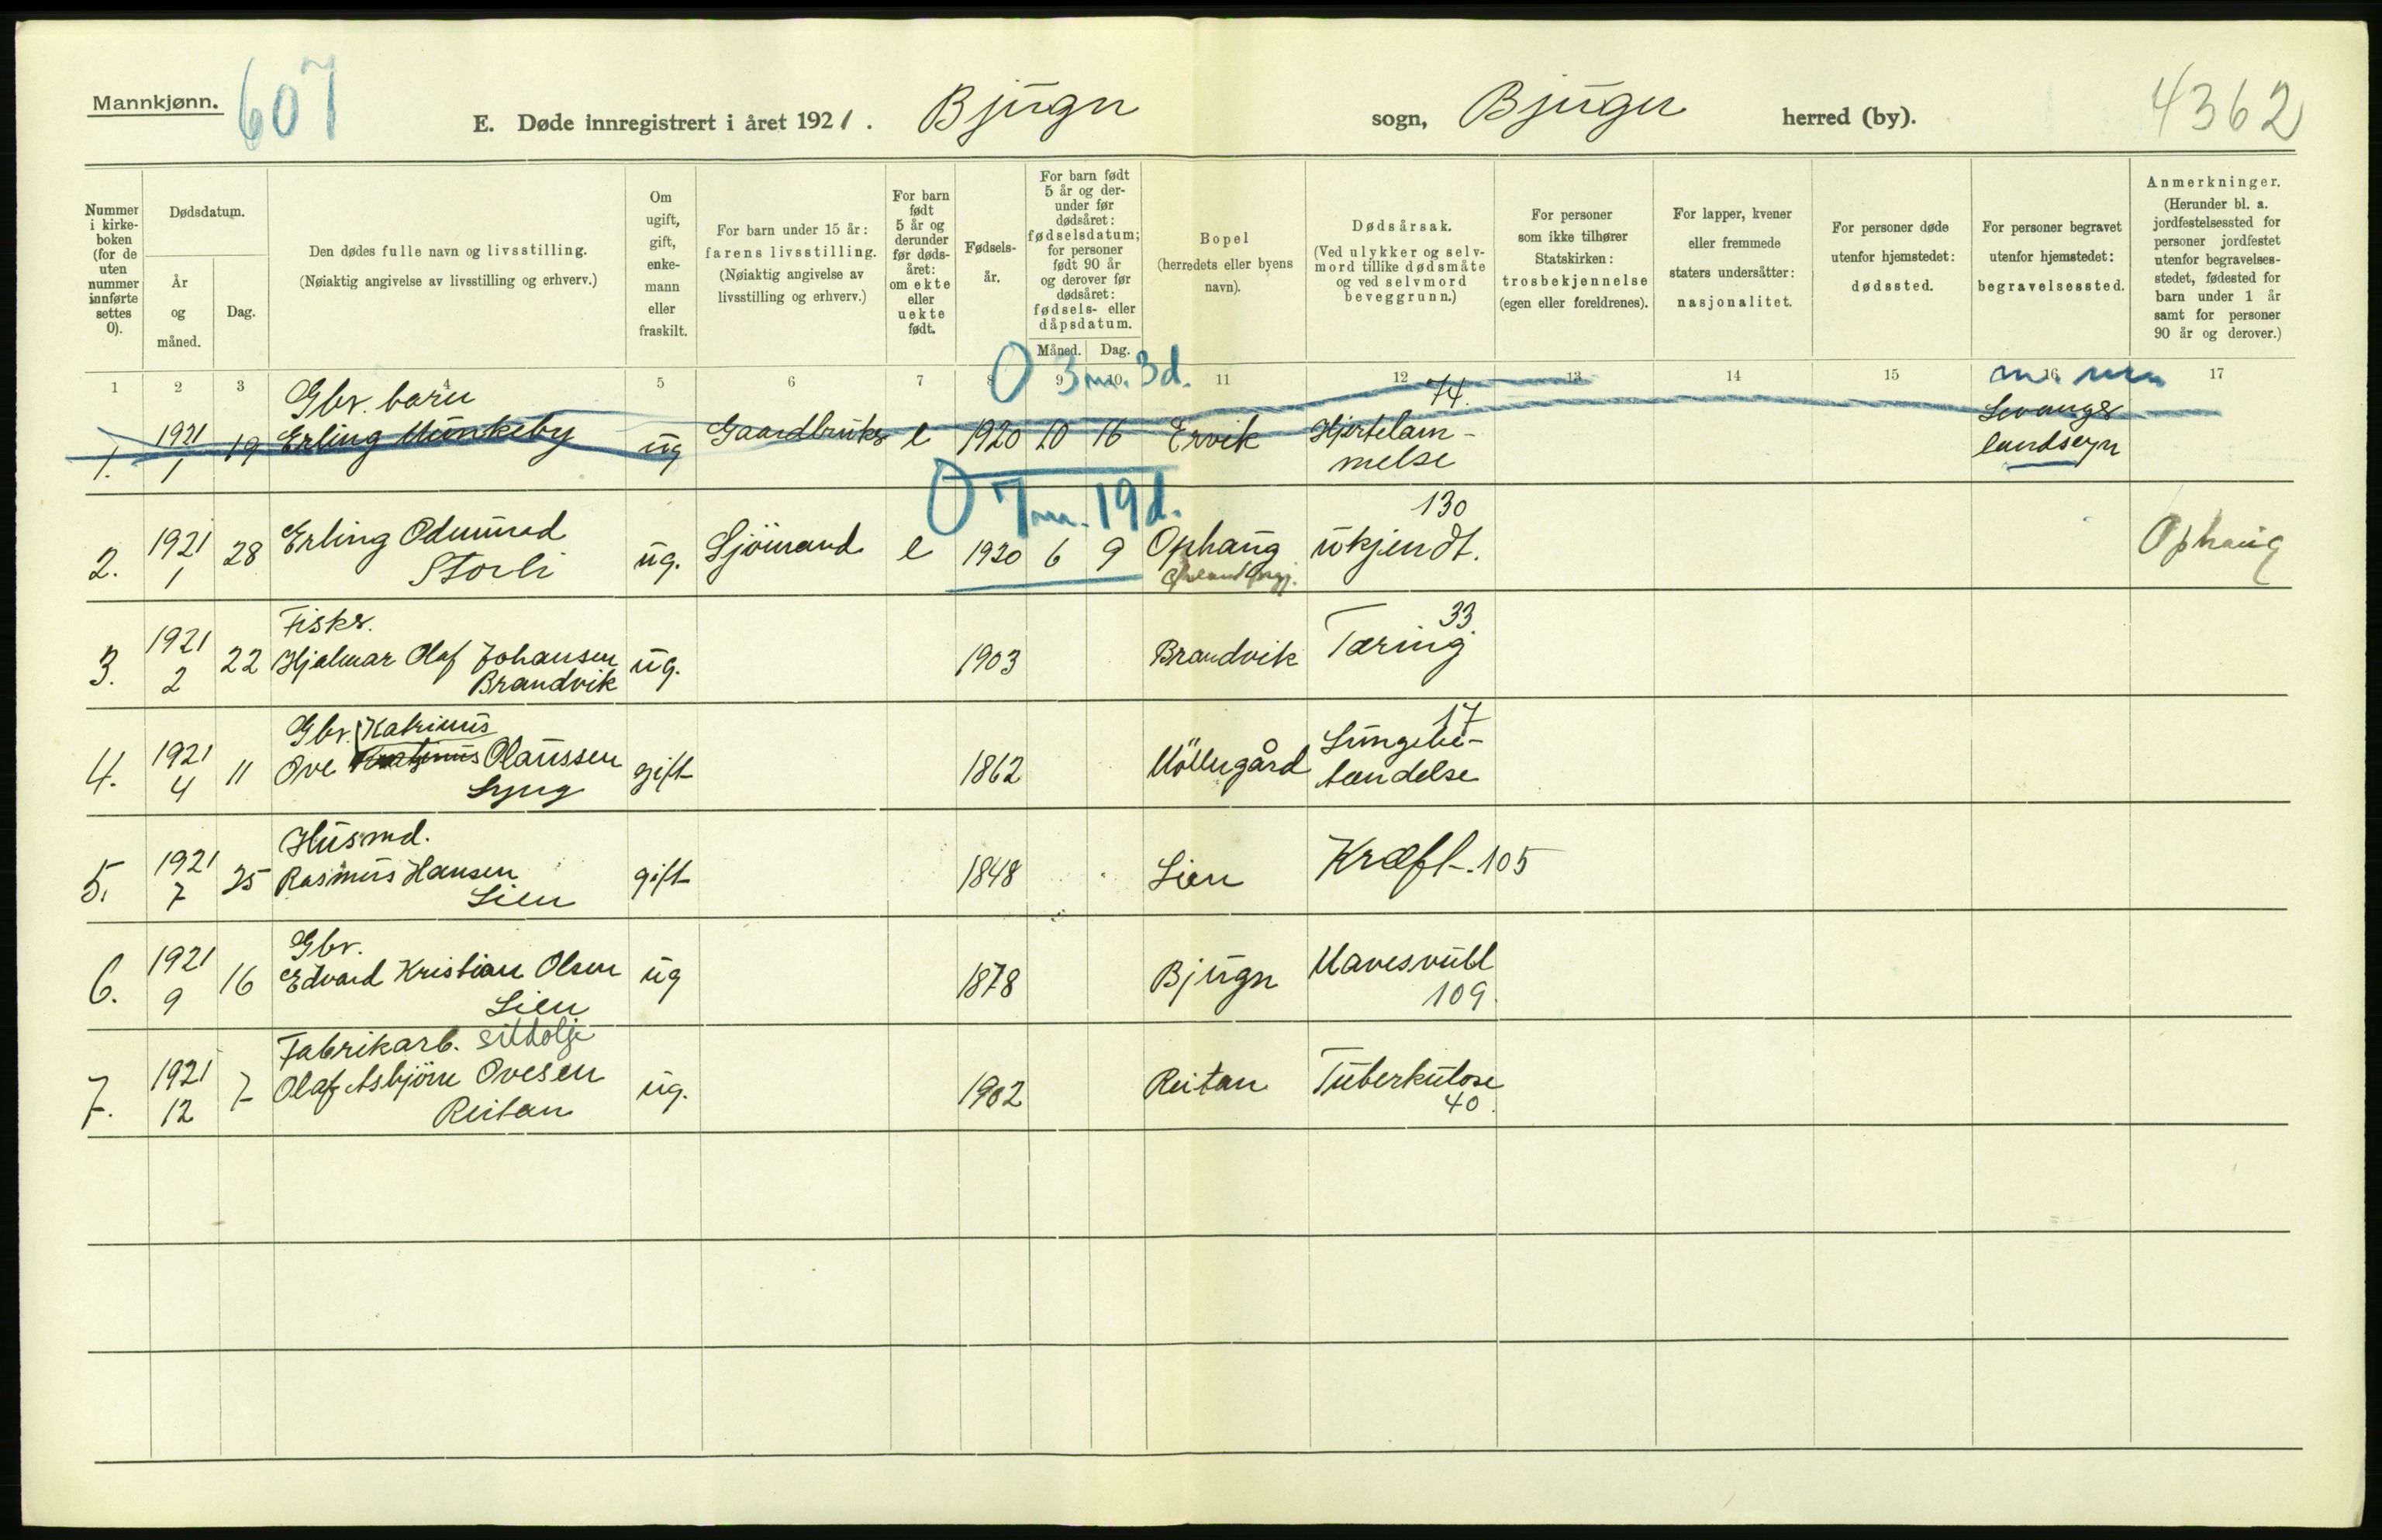 Mannkjønn.
607
E. Døde innregistrert i året 1921. Bjugn sogn, Bjugn herred (by).
4362
Nummer i kirkeboken (for de uten nummer innførte settes 0).
Dødsdatum.
År og måned.
Dag.
Den dødes fulle navn og livsstilling.
(Nøiaktig angivelse av livsstilling og erhverv.)
Om ugift, gift, enkemann eller fraskilt.
For barn under 15 år: farens livsstilling.
(Nøiaktig angivelse av livsstilling og erhverv.)
For barn født 5 år og derunder før dødsåret: om ekte eller uekte født.
Fødselsår.
For barn født 5 år og derunder før dødsåret: fødselsdatum; for personer født 90 år og derover før dødsåret: fødsels- eller dåpsdatum.
Måned. Dag.
Bopel
(herredets eller byens navn).
Dødsårsak.
(Ved ulykker og selvmord tillike dødsmåte og ved selvmord beveggrunn.)
For personer som ikke tilhører Statskirken: trosbekjennelse (egen eller foreldrenes).
For lapper, kvener eller fremmede staters undersåtter: nasjonalitet.
For personer døde utenfor hjemstedet: dødssted.
For personer begravet utenfor hjemstedet: begravelsessted.
Anmerkninger.
(Herunder bl. a. jordfestelsessted for personer jordfestet utenfor begravelsesstedet, fødested for barn under 1 år samt for personer 90 år og derover.)
1 2 3 4 5 6 7 8 9 10 11 12 13 14 15 16 17
0 3 m. 3 d.
Gbr. barn
74.
1. 1921 1 19 Erling Munkeby ug Gaardbruker e 1920 10 16 Ervik Hjertelam-
melse
Levanger
landsogn
0 7 m. 19 d.
130
2. 1921 1 28 Erling Odmund
Storli ug. Sjömand e 1920 6 9 Ophaug ukjendt. Ophaug
Fisker.
33.
3. 1921 2 22 Hjalmar Olaf Johansen
Brandvik ug. 1903 Brandvik Tæring
Gbr. Katrinus
17
4. 1921 4 11 Ove Olaussen
Lyng gift 1862 Möllegård Lungebe-
tændelse
Husmd.
5. 1921 7 25 Rasmus Hansen
Lien gift 1848 Lien Kræft. 105
Gbr.
6. 1921 9 16 Edvard Kristian Olsen
Lien ug 1878 Bjugn Mavesvull
109.
Fabrikarb. sildolje
7. 1921 12 7 Olaf Asbjörn Ovesen
Reitan ug. 1902 Reitan Tuberkulose
40.